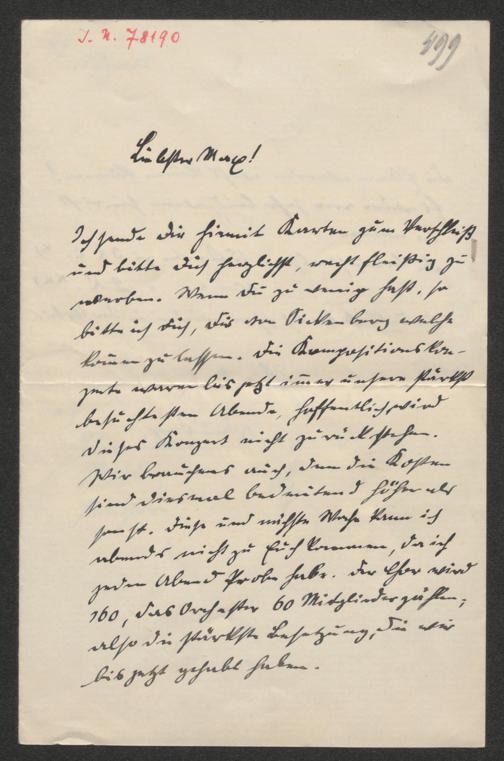 J. N. 78190
499
Liebster Max!
Ich sende Dir hiemit Karten zum Verschleiß
und bitte Dich herzlichst, recht fleißig zu
werben. Wenn Du zu wenig hast, so
bitte ich Dich, Dir von Sickenberg welche
kommen zu lassen. Die Kompositionskon-
zerte waren bis jetzt immer unsere stärkst
besuchtesten Abende, hoffentlich wird
dieses Konzert nicht zurückstehen.
Wir brauchens auch, denn die Kosten
sind diesmal bedeutend höher als
sonst. Diese und nächste Woche kann ich
abends nicht zu Euch kommen, da ich
jeden Abend Probe habe. Der Chor wird
160, das Orchester 60 Mitglieder zählen;
also die stärkste Besetzung, die wir
bis jetzt gehabt haben.